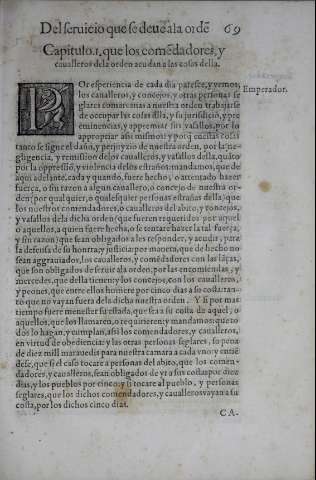 Del seruicio que se deue a la ordē 69
Capitulo.1. que los comēdadores, y
caualleros dela orden acudan a las cosas della.
Emperador.
POr esperiencia de cada dia paresce, y vemos
los caualleros, y concejos, y otras personas se
glares comarcanas a nuestra orden trabajarse
de occupar las cosas dlla, y su jurisdicio, y pre
eminencias, y appremiar sus vasallos, por lo
appropriar asi mismos: y porq̄ destas cosas
tanto se signe el daño, y perjuyzio de nuestra orden, por la ne-
gligencia, y remissiō delos caualleros, y vasallos della, quāto
por la oppressiō, y violencia delos estraños, mandamos, que de
aqui adelāte, cada y quando, fuere hecho, o attentado hazer
fuerça, o sin razon a algun cauallero, o concejo de nuestra or-
den, por qualquier, o qualesquier personas estrañas della, que
los nuestros comendadores, o caualleros del abito, y concejos,
y vasallos dela dicha orden (que fueren requeridos por aquel
o aquellos, a quien fuere hecha, o se tentare hazer la tal fuerça,
y sin razon) que sean obligados a les responder, y acudir, para
la defensa de su honrra, y justicia: por manera, que de hecho no
sean aggrauiados, los caualleros, y comēdadores con las lāças,
que son obligados de seruir ala orden, por las encomiendas, y
mercedes, que della tienen: y los concejos, con los caualleros,
y peones, que entre ellos houiere por cinco dias a su costa: tan-
to que no vayan fuera dela dicha nuestra orden. Y si por mas
tiempo fuere menester su estada, que sea a su costa de aquel, o
aquellos, que los llamarē, o requirieren: y mandamos: que to
dos lo hagan, y cumplan, assi los comendadores, y caualleros,
en virtud de obediencia: y las otras personas seglares, so pena
de diez mill marauedis para nuestra camara a cada vno: y entiē
dese, que si el caso tocare a personas del abito, que los comen-
dadores, y caualleros, sean obligados de yr a sus costas por diez
dias, y los pueblos por cinco: y si tocare al pueblo, y personas
seglares, que los dichos comendadores, y caualleros vayan a su
costa, por los dichos cinco dias.
CA-